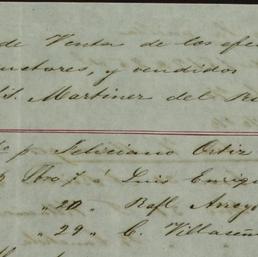 de Venta de los efe
uctores, y vendidos
S. Martinez del R
p Feliciano Ortiz
7 á Luis Enriq
" 20 " Rafl. Arroy
" 29 " C. Villaseñ